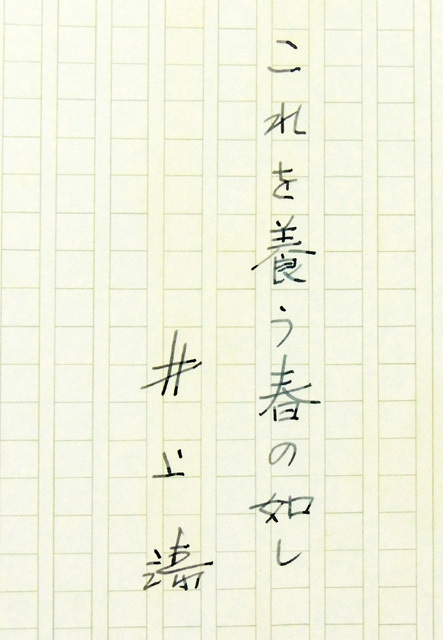 これを養う春の如し
井上靖